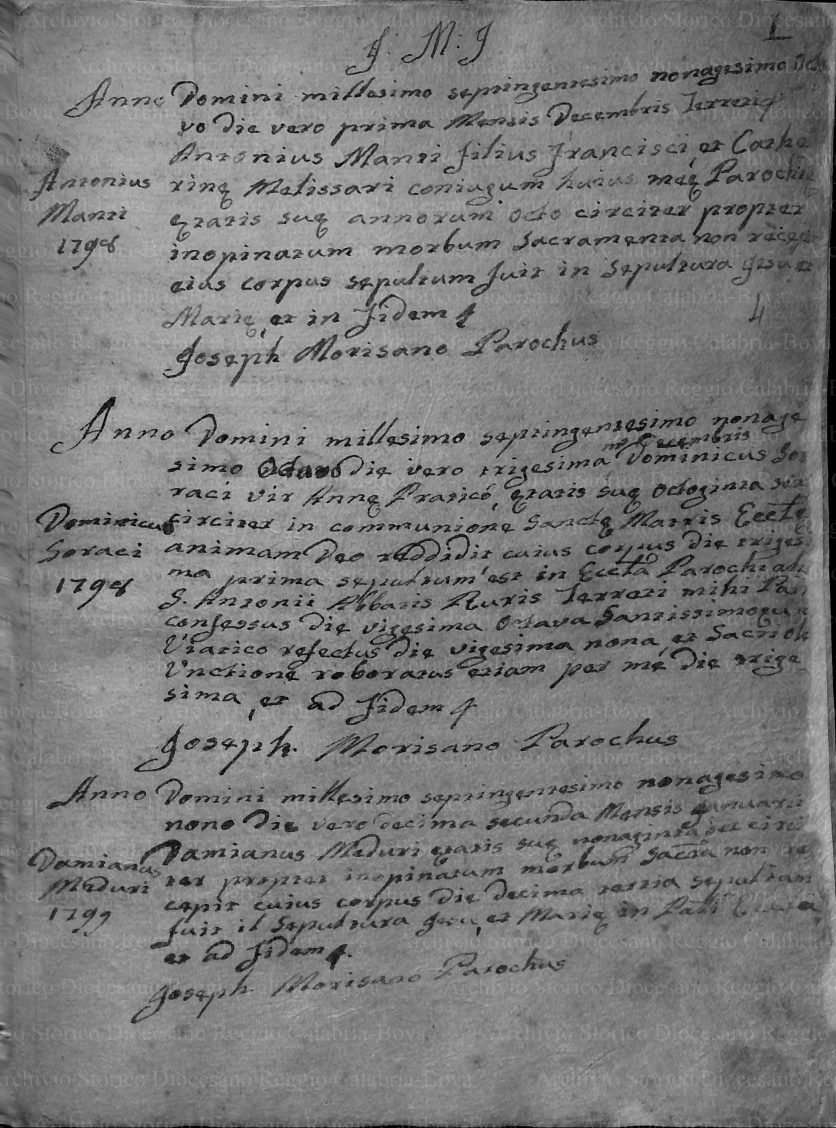 1
J: M: J
Anno Domini millesimo septingentesimo nonagesimo Octa
vo die vero prima Mensis Decembris Terreti
Antonius Manti filius Francisci, et Cathe
Antonius
Manti
1798
rinę Melissari coniugum huius meę Parochię
ętatis suę annorum octo circiter propter
inopinatum morbum Sacramenta non recepit
eius corpus sepultum fuit in Sepultura Jesu et
Marię, et in fidem
4
Joseph Morisano Parochus
Anno Domini millesimo septingentesimo nonage
simo Octavo die vero trigesima m. Decembris Dominicus So
raci vir Annę Praticò, ętatis suę octoginta
Dominicus
Soraci
1798
circiter in communione Sanctę Matris Eccłę
animam Deo reddidit cuius corpus die trigesi
ma prima sepultum est in Eccła Parochiali
S. Antonii Abbatis Ruris Terreti mihi
confessus die vigesima Octava Santissimoque
Viatico refectus die vigesima nona, et Sacri Olei
Unctione roboratus etiam per me die trige
sima, et ad fidem
Joseph Morisano Parochus
Anno Domini millesimo septingentesimo nonagesimo
nono die vero decima secunda Mensis Januarii
Damianus Meduri ętatis suę nonaginta circi
Damianus
Meduri
1799
ter propter inopinatum morbum Sacra non re
cepit cuius corpus die decima tertia sepultum
fuit in Sepultura Jesu, et Marię in
et ad fidem
Joseph Morisano Parochus